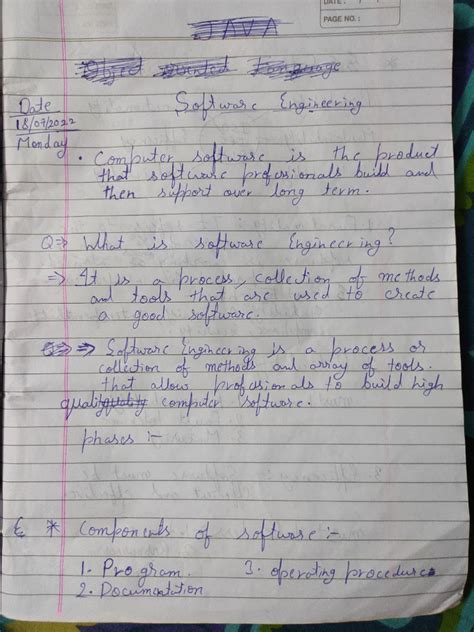 DATE: / /
PAGE NO.:
JAVA
Object oriented Language
Software Engineering
Date
18/07/2022
Monday
• Computer software is the product
that software professionals build and
then support over long term.
Q⇒ What is software Engineering?
⇒ It is a process, collection of methods
and tools that are used to create
a good software.
⇒ Software Engineering is a process or
collection of methods and array of tools.
that allow professionals to build high
quality computer software.
phases :-
* Components of software :-
1. Program. 3. operating procedures
2. Documentation